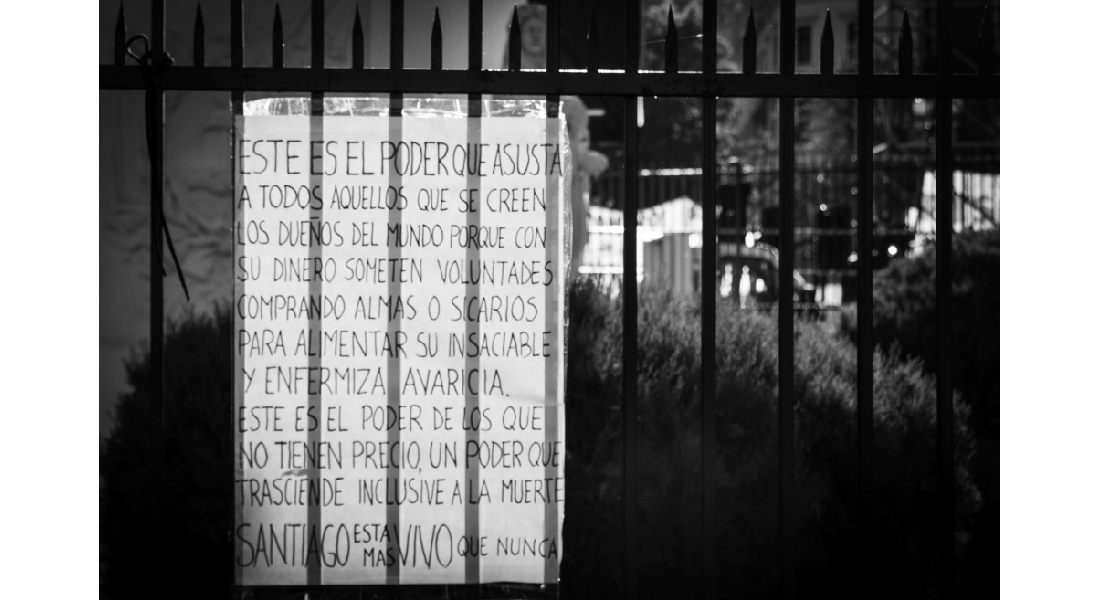 ESTE ES EL PODER QUE ASUSTA
A TODOS AQUELLOS QUE SE CREEN
LOS DUEÑOS DEL MUNDO PORQUE CON
SU DINERO SOMETEN VOLUNTADES
COMPRANDO ALMAS O SICARIOS
PARA ALIMENTAR SU INSACIABLE
Y ENFERMIZA AVARICIA.
ESTE ES EL PODER DE LOS QUE
NO TIENEN PRECIO, UN PODER QUE
TRASCIENDE INCLUSIVE A LA MUERTE
SANTIAGO ESTA MAS VIVO QUE NUNCA